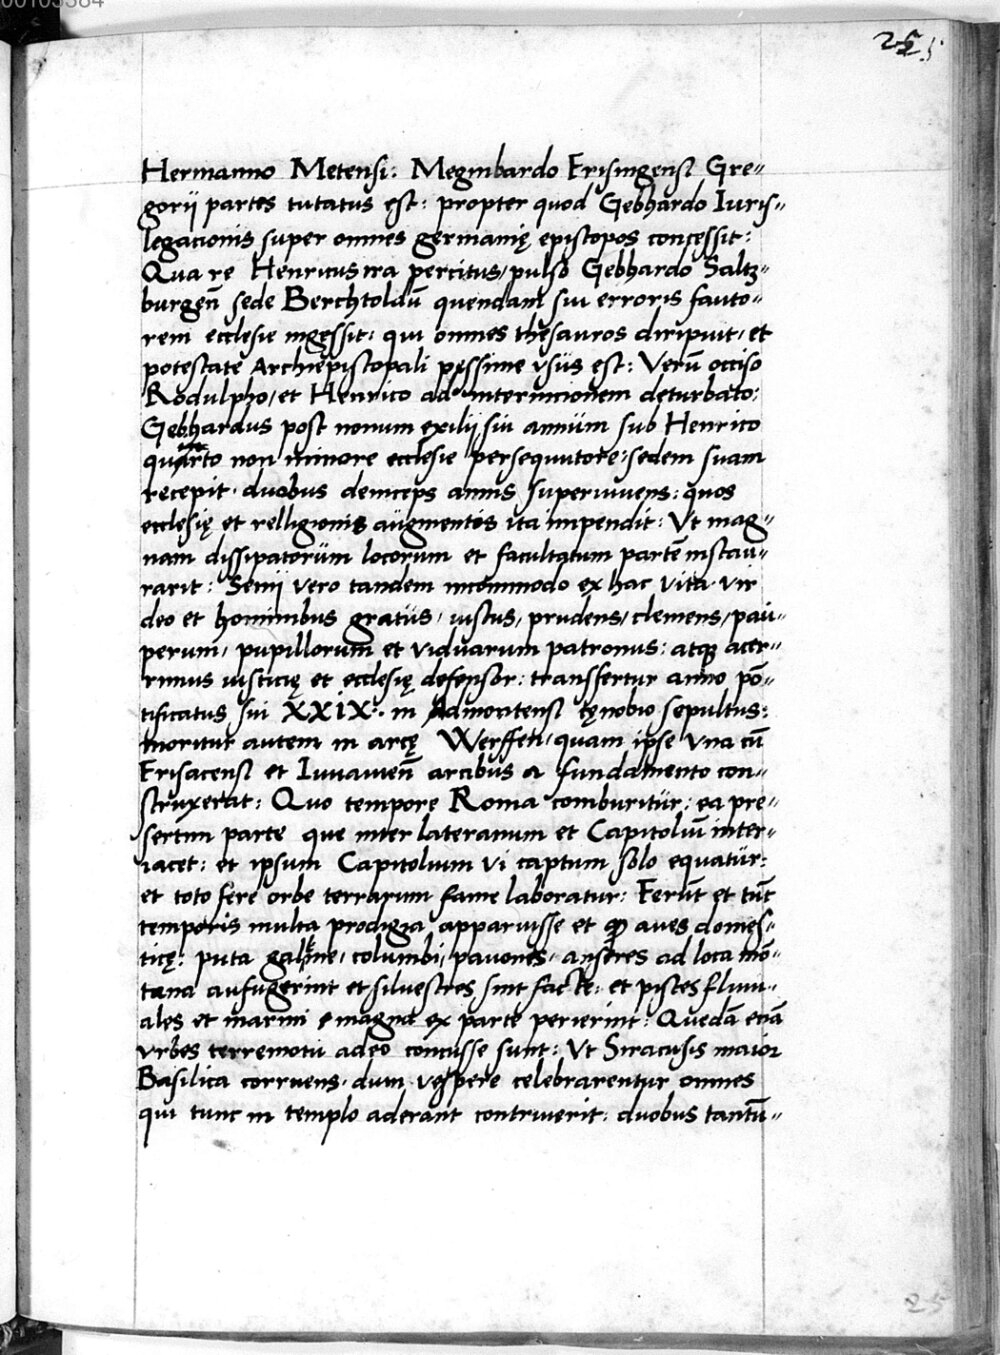 00103384
25
Hermanno Metensi: Meginbardo Frisingensi Gre〃
gorij partes tutatus est: propter quod Gebhardo Iuris〃
legacionis super omnes germanię episcopos concessit:
Qua re Henricus ira percitus/ pulso Gebhardo Saltz〃
burgeñ sede Berchtoldū quendam sui erroris fauto〃
rem ecclesie ingessit: qui omnes thesauros diripuit/ et
potestate Archiepiscopali pessime vsus est: Verū occiso
Rodulpho/ et Henrico ad internicionem deturbato:
Gebhardus post nonum exilij sui annum sub Henrico
quarto non minore ecclesie persequutore: sedem suam
recepit. duobus deinceps annis superuiuens: quos
ecclesię et relligionis augmentos ita impendit: Ut mag〃
nam dissipatorum locorum et facultatum partē instau〃
rarit: Senij vero tandem incommodo ex hac vita vir
deo et hominibus gratus/ iustus/ prudens/ clemens/ pau〃
perum/ pupillorum et viduarum patronus: atq; acer〃
rimus iusticię et ecclesię defensor: transfertur anno pō〃
tificatus sui XXIX. in Admontensi cęnobio sepultus:
moritur autem in arcę Werffen/ quam ipse vna cū
Frisacensi et Iuuauieñ arcibus a fundamento con〃
struxerat: Quo tempore Roma comburitur: ea pre〃
sertim parte que inter lateranum et Capitoliū inter〃
iacet: et ipsum Capitolium vi captum solo equatur:
et toto fere orbe terrarum fame laboratur: Ferūt et tūc
temporis multa prodigia apparuisse et qp aves domes〃
ticę: puta galline/ columbi/ pavones/ anseres ad loca mō〃
tana aufugerint et siluestres sint facte: et pisces fluui〃
ales et marini e magna ex parte perierint: Quedā etiā
vrbes terremotu adeo concusse sunt: Ut Siracusis maior
Basilica corruens. dum vespere celebrarentur omnes
qui tunc in templo aderant contriuerit: duobus tantū〃
25